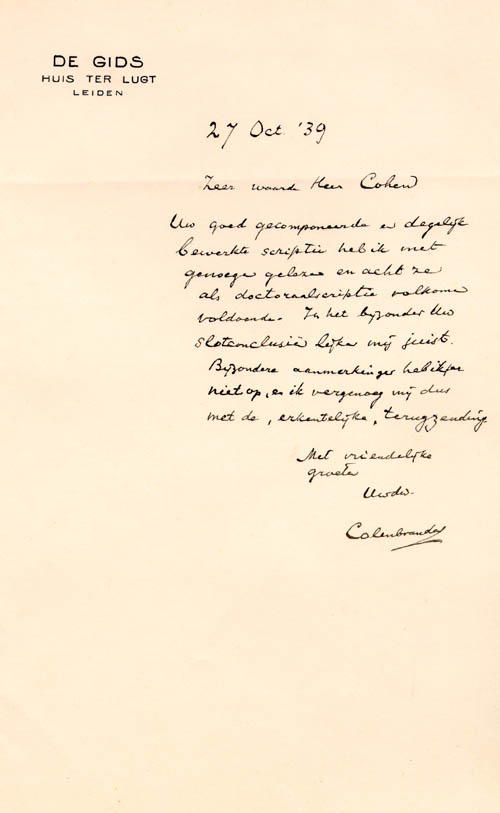 DE GIDS
HUIS TER LUGT
LEIDEN
27 Oct. '39
Zeer waarde Heer Cohen
Uw goed gecomponeerde en degelijk
bewerkte scriptie heb ik met
genoegen gelezen en acht ze
als doctoraalscriptie volkomen
voldoende. In het bijzonder Uw
slotconclusie lijken mij juist.
Bijzondere aanmerkingen heb ik er
niet op, en ik vergenoeg mij dus
met de, erkentelijke, terugzending
Met vriendelijke
groeten
Uwdw.
Colenbrander